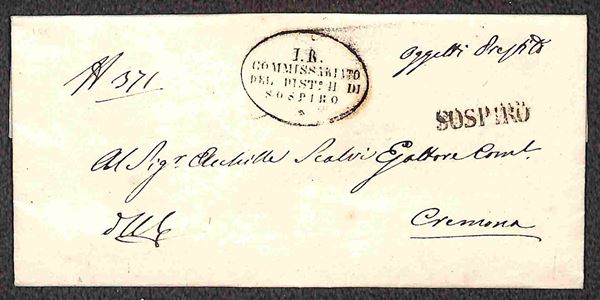 N 371
I. R.
COMMISSARIATO
DEL DIST.º II DI
SOSPIRO
Oggetti
SOSPIRO
Al Sig.r Achille Scalvi Esattore Com.le
Cremona